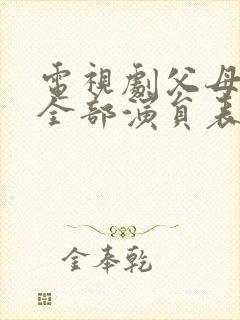 電視劇父母
全部演員表
金奉乾